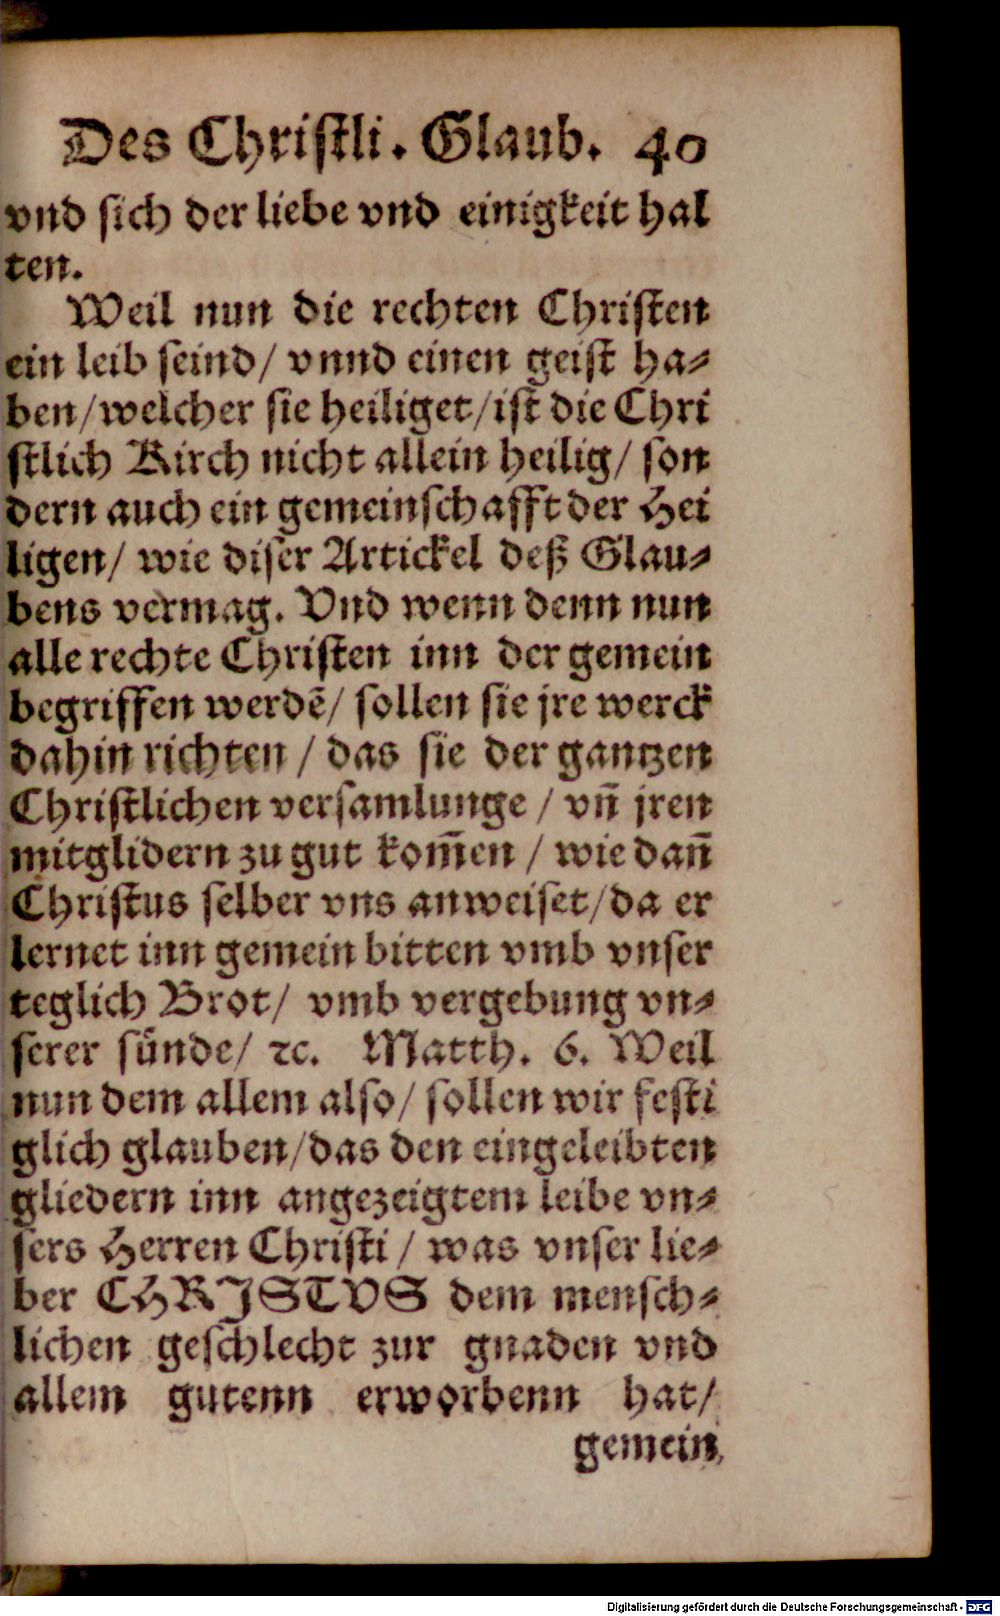 Des Christli. Glaub. 40
vnd sich der liebe vnd einigkeit hal
ten.
Weil nun die rechten Christen
ein leib seind/ vnnd einen geist ha-
ben/welcher sie heiliget/ist die Chri
stlich Kirch nicht allein heilig/ son
dern auch ein gemeinschafft der Hei
ligen/ wie diser Artickel deß Glau-
bens vermag. Vnd wenn denn nun
alle rechte Christen inn der gemein
begriffen werdẽ/ sollen sie jre werck
dahin richten / das sie der gantzen
Christlichen versamlunge / vñ jren
mitglidern zu gut kom̃en / wie dañ
Christus selber vns anweiset/da er
lernet inn gemein bitten vmb vnser
teglich Brot/ vmb vergebung vn-
serer sünde/ ꝛc. Matth. 6. Weil
nun dem allem also/ sollen wir festi
glich glauben/das den eingeleibten
gliedern inn angezeigtem leibe vn-
sers Herren Christi / was vnser lie-
ber CHRJSTVS dem mensch-
lichen geschlecht zur gnaden vnd
allem gutenn erworbenn hat/
gemein
Digitalisierung gefördert durch die Deutsche Forschungsgemeinschaft - DFG